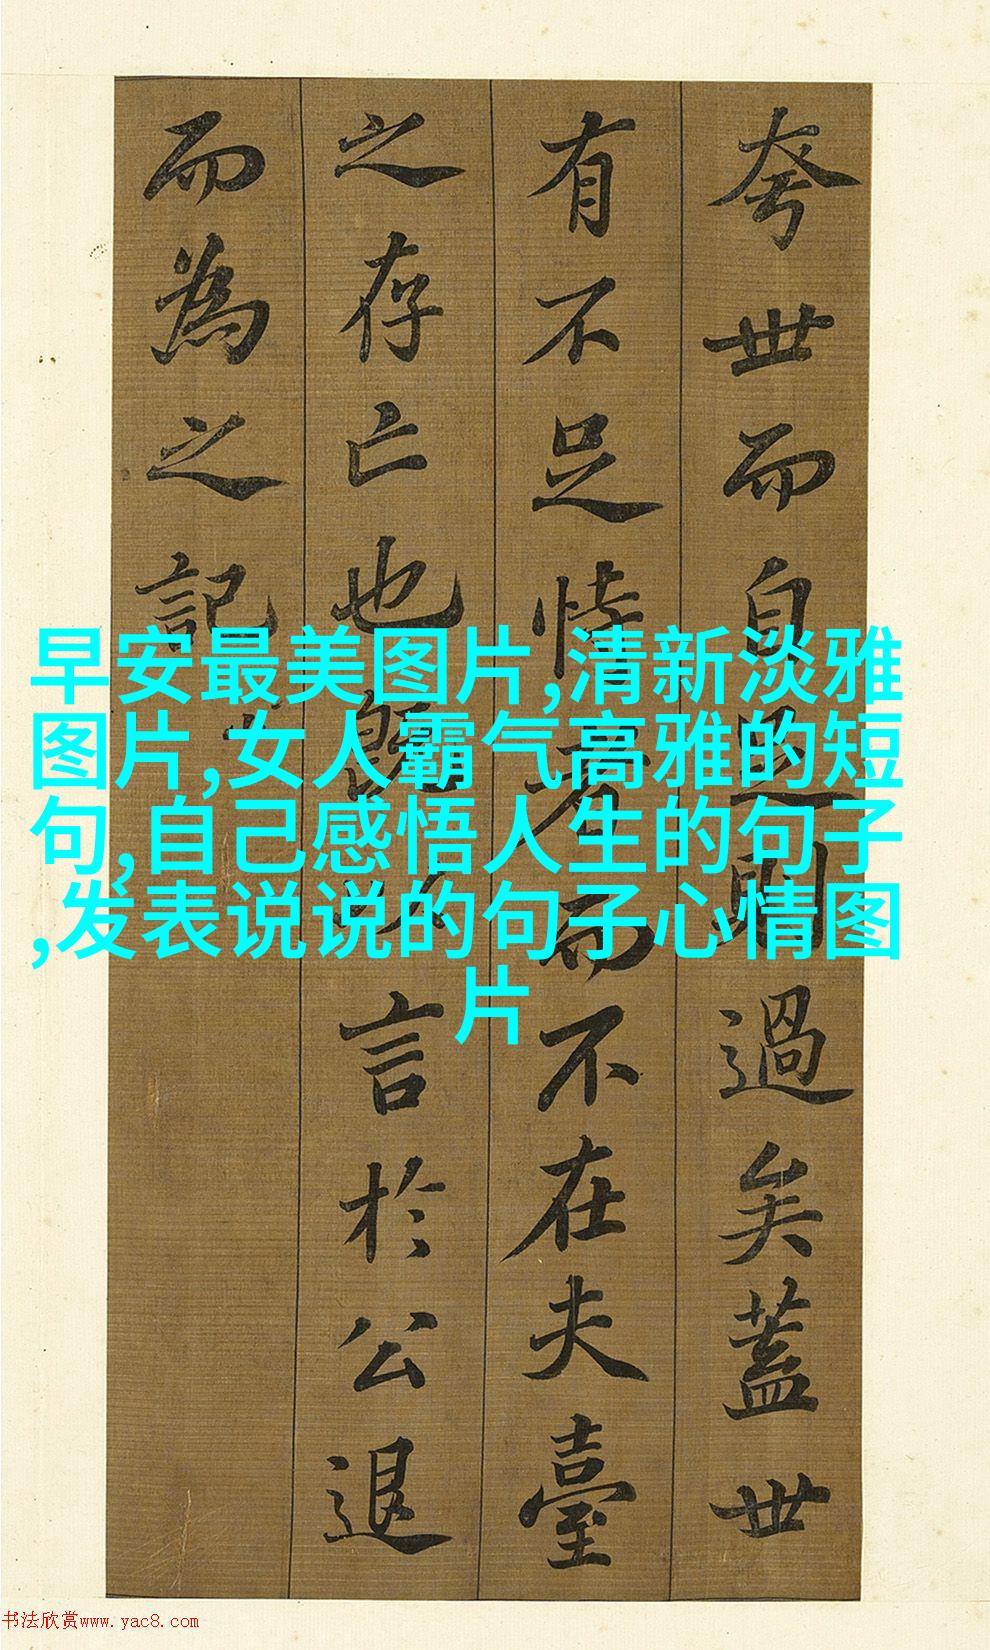 夸世而自足則過矣蓋世
有不足恃者而不在夫臺
之存亡也既以言於公退
而為之記
早安最美图片,清新淡雅
图片,女人霸气高雅的短
句,自己感悟人生的句子
,发表说说的句子心情图
片
书法欣赏www.yac8.com